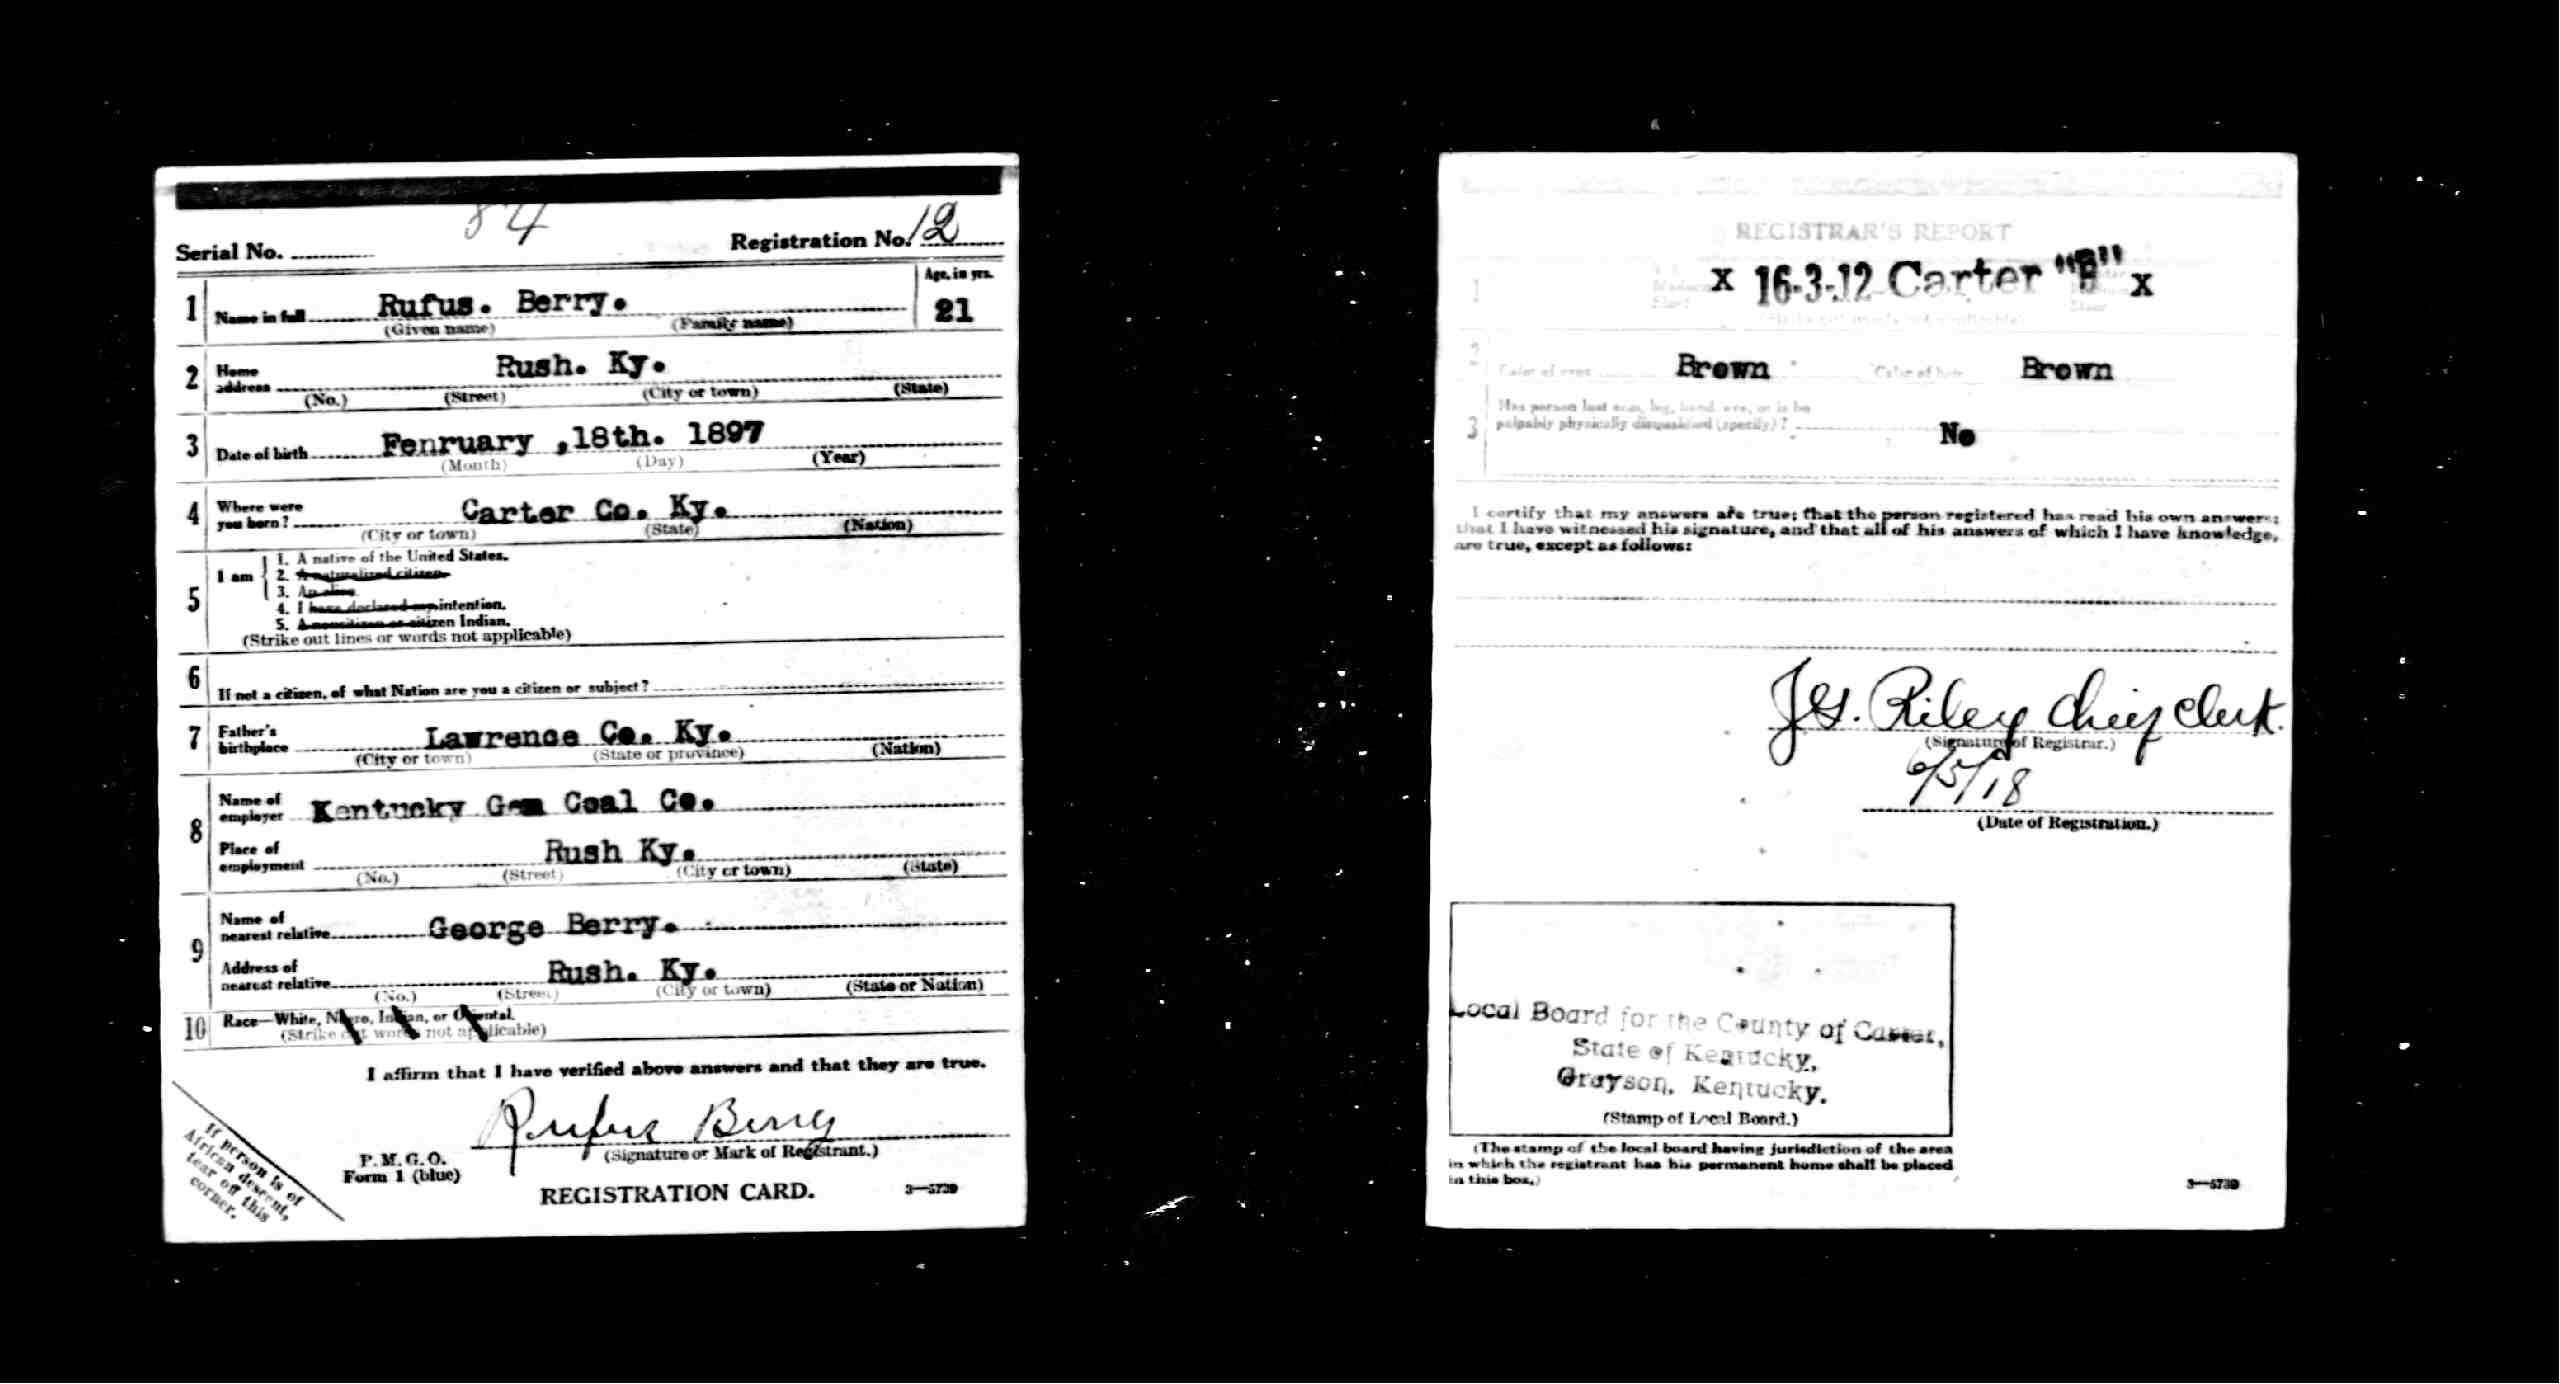 84
Serial No. Registration No. 12
1 Name in full Rufus. Berry. Age, in yrs. 21
(Given name) (Family name)
2 Home address Rush. Ky.
(No.) (Street) (City or town) (State)
3 Date of birth Fenruary ,18th. 1897
(Month) (Day) (Year)
4 Where were you born? Carter Co. Ky.
(City or town) (State) (Nation)
5 I am
1. A native of the United States.
2. A naturalized citizen.
3. An alien.
4. I have declared my intention.
5. A noncitizen or citizen Indian.
(Strike out lines or words not applicable)
6 If not a citizen, of what Nation are you a citizen or subject?
7 Father's birthplace Lawrence Co. Ky.
(City or town) (State or province) (Nation)
8 Name of employer Kentucky Gem Coal Co.
Place of employment Rush Ky.
(No.) (Street) (City or town) (State)
9 Name of nearest relative George Berry.
Address of nearest relative Rush. Ky.
(No.) (Street) (City or town) (State or Nation)
10 Race—White, Negro, Indian, or Oriental.
(Strike out words not applicable)
I affirm that I have verified above answers and that they are true.
Rufus Berry
(Signature or Mark of Registrant.)
P. M. G. O.
Form 1 (blue)
REGISTRATION CARD. 3—5739
If person is of
African descent,
tear off this
corner.
REGISTRAR'S REPORT
1 x 16-3-12 Carter "B" x
2 Color of eyes Brown Color of hair Brown
3 Has person lost arm, leg, hand, eye, or is he
palpably physically disqualified (specify)? No
I certify that my answers are true; that the person registered has read his own answers;
that I have witnessed his signature, and that all of his answers of which I have knowledge,
are true, except as follows:
J.G. Riley Chief Clerk.
(Signature of Registrar.)
6/5/18
(Date of Registration.)
Local Board for the County of Carter,
State of Kentucky,
Grayson, Kentucky.
(Stamp of Local Board.)
(The stamp of the local board having jurisdiction of the area
in which the registrant has his permanent home shall be placed
in this box.)
3—5739